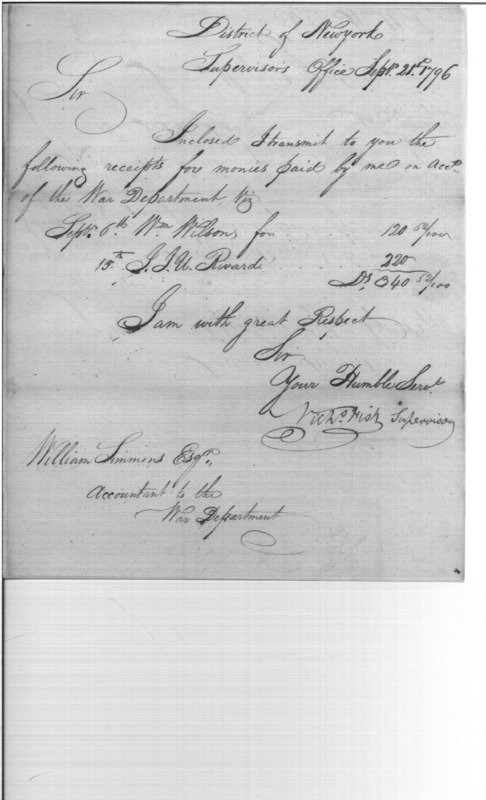 District of Newyork
Supervisors Office Sept. 21st 1796
Sir
Inclosed I transmit to you the
following receipts fore monies paid by me on Acct.
of the War Department, Viz
Septr. 6th Wm Wilsons for 120 50/100
15th J. J. U. Rivardi 220
Ds 340 50/100
I am with great Respect
Sir
Your Humble Servt.
Nichs Fish Supervisor
William Simmons Esqr.
Accountant to the
War Department